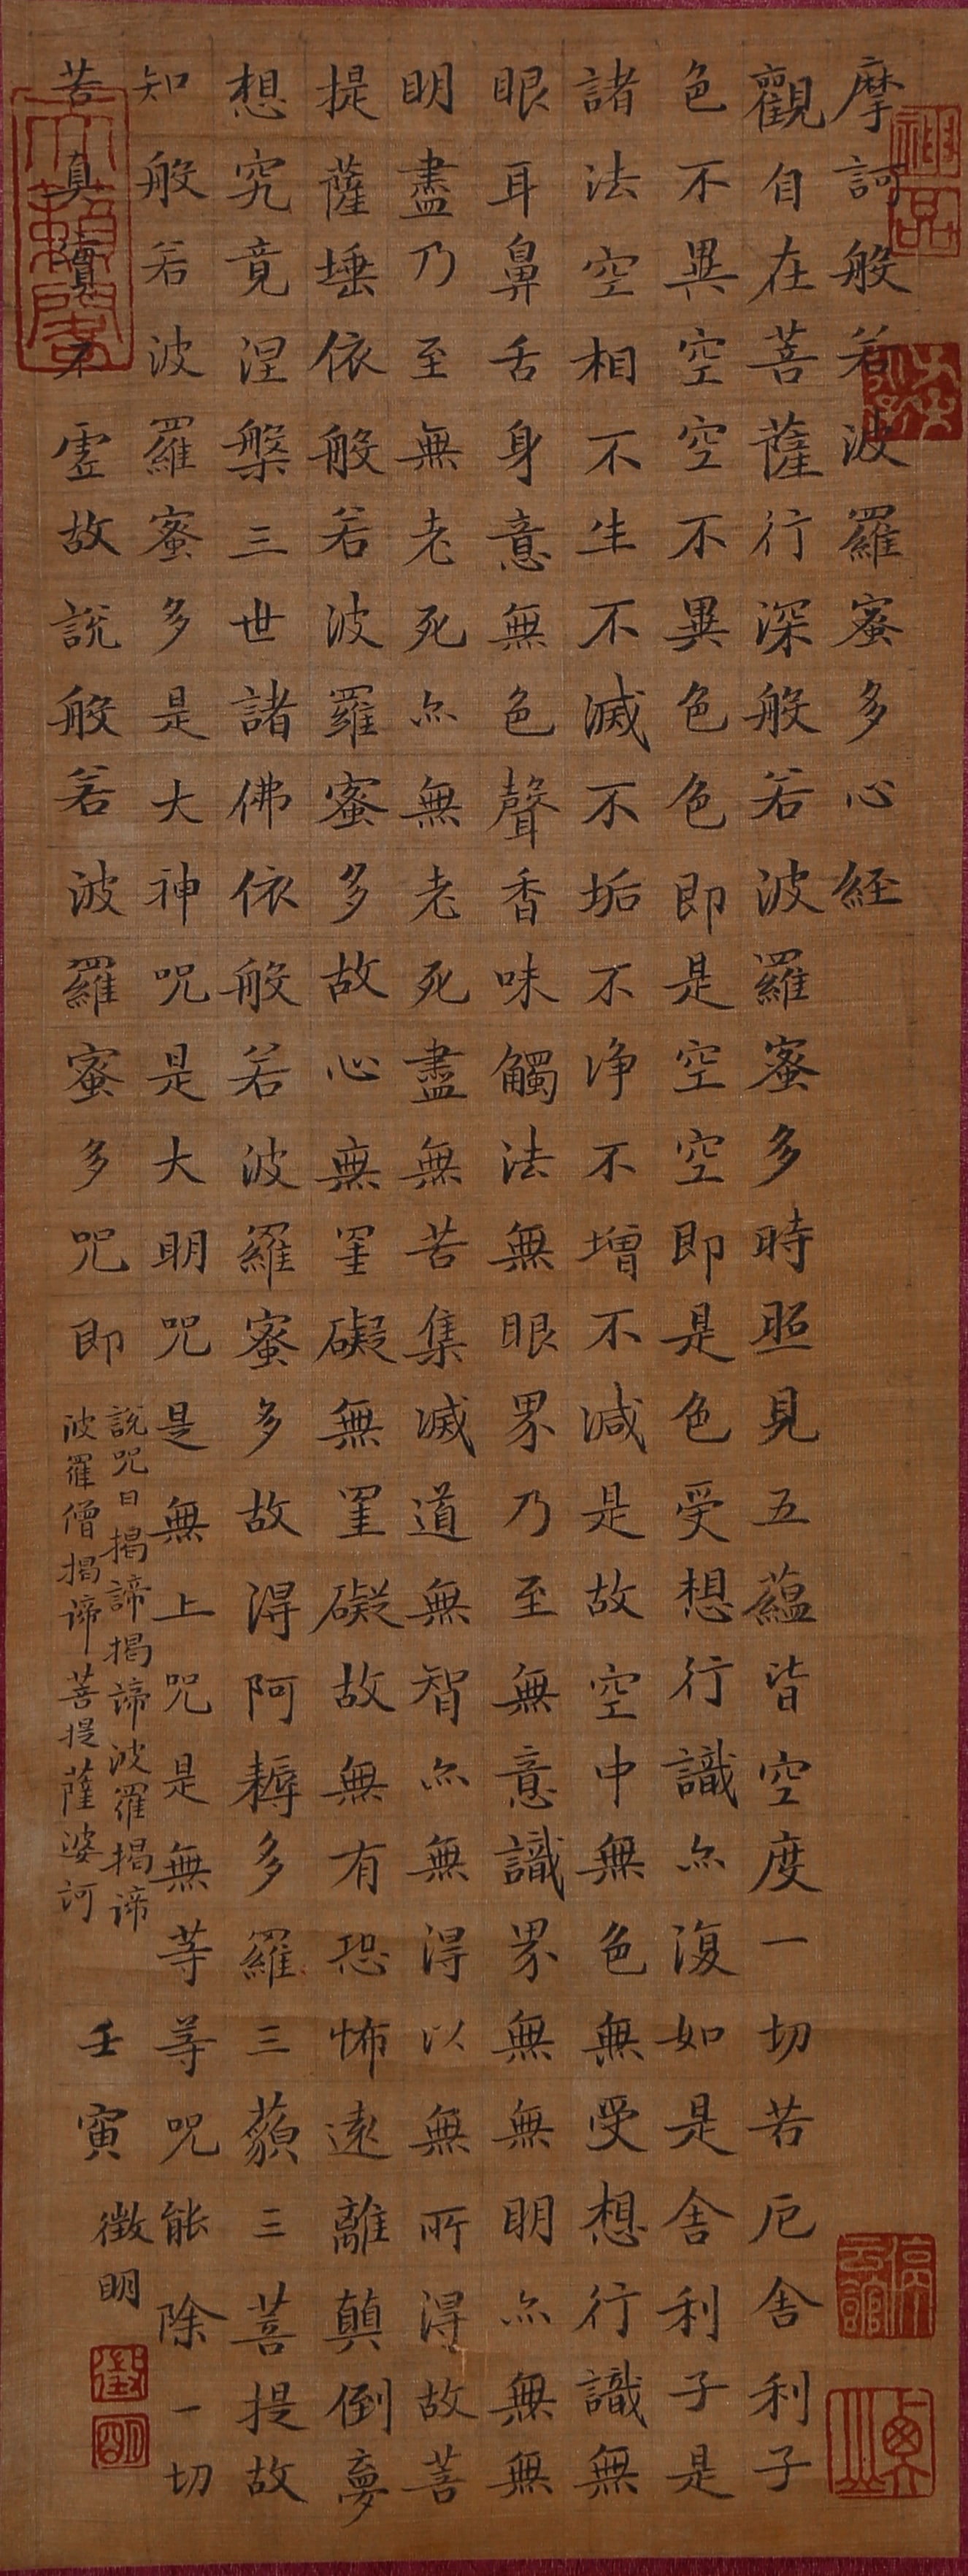 摩訶般若波羅蜜多心経
觀自在菩薩行深般若波羅蜜多時照見五蘊皆空度一切苦厄舍利子
色不異空空不異色色即是空空即是色受想行識亦復如是舍利子是
諸法空相不生不滅不垢不净不增不減是故空中無色無受想行識無
眼耳鼻舌身意無色聲香味觸法無眼界乃至無意識界無無明亦無無
明盡乃至無老死亦無老死盡無苦集滅道無智亦無得以無所得故菩
提薩埵依般若波羅蜜多故心無罣礙無罣礙故無有恐怖遠離顛倒夢
想究竟涅槃三世諸佛依般若波羅蜜多故得阿耨多羅三藐三菩提故
知般若波羅蜜多是大神咒是大明咒是無上咒是無等等咒能除一切
苦真實不虛故說般若波羅蜜多咒即
說咒曰揭諦揭諦波羅揭諦
波羅僧揭諦菩提薩婆訶
壬寅 徵明
神品
停雲館
徵
明